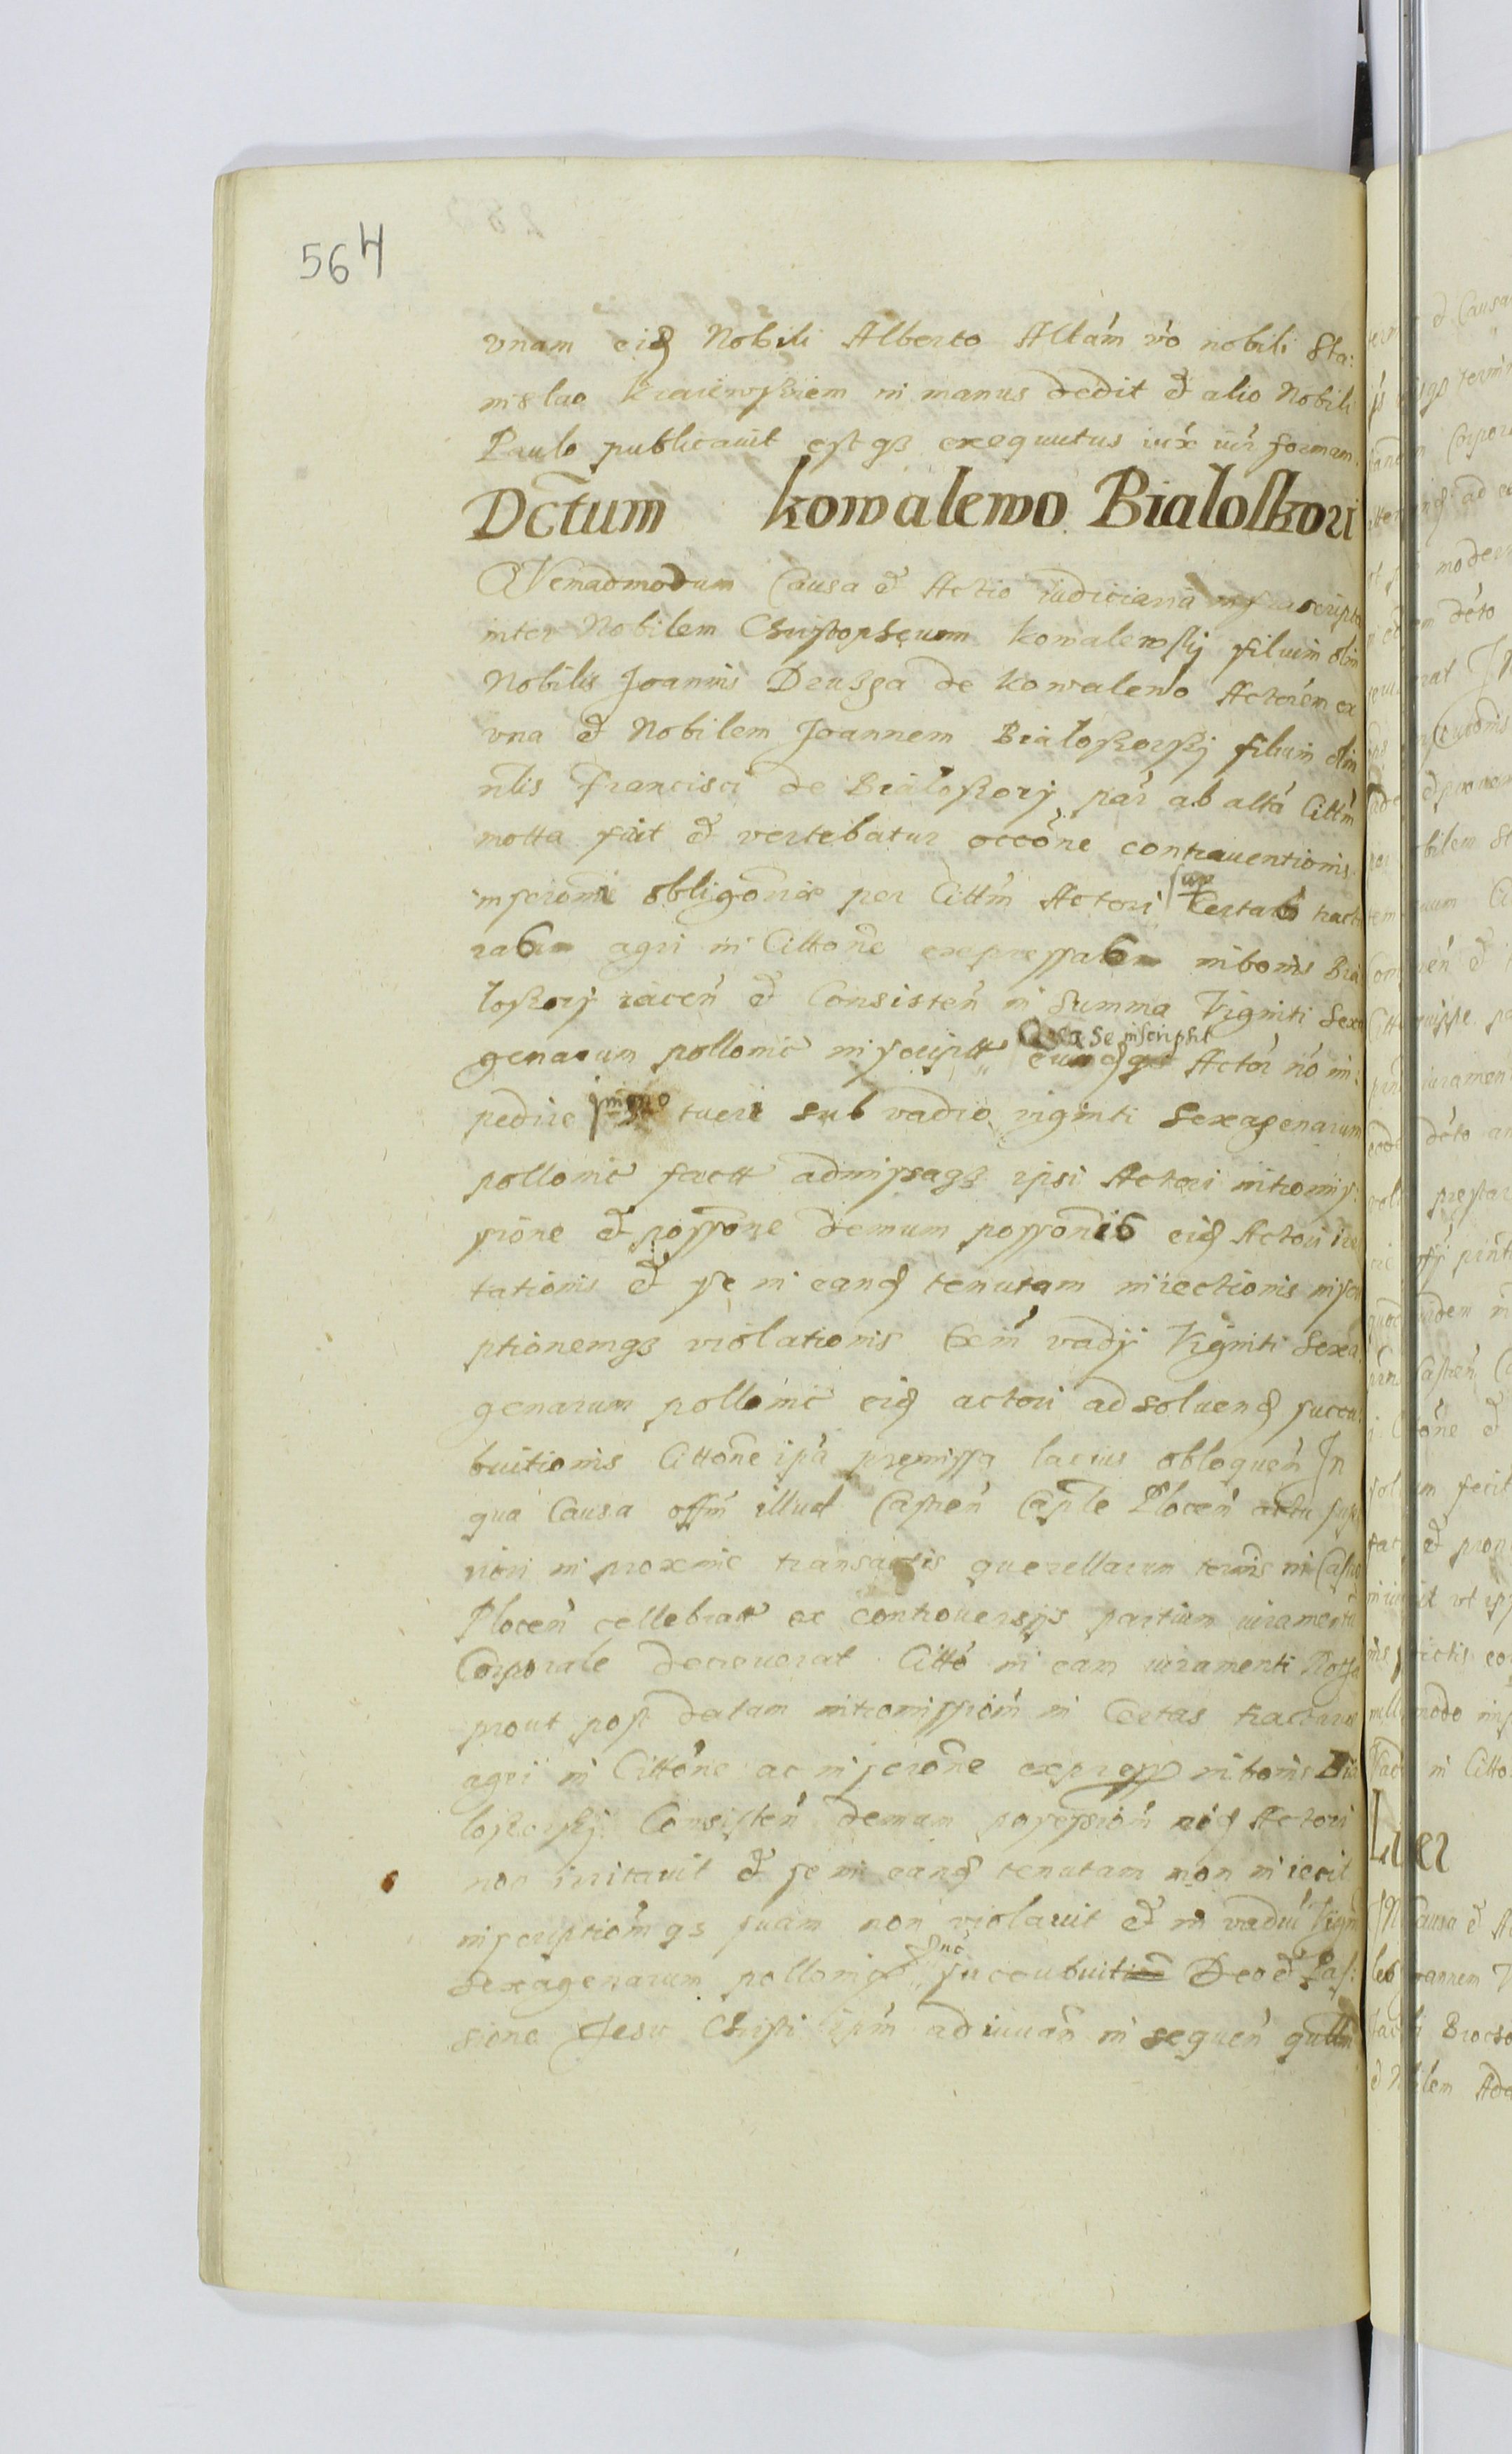 564
vnam eid Nobili Alberto Altám vo nobili Sta:
nislao Kraiewskiem in manus dedit et alio Nobili
Paulo publicauit estqз exequutus iux iur formam.
Dctum kowalewo Bialoskori
QVemadmodum Causa et Actio iudiciaria infrascripta
inter Nobilem Christopherum Kowalewskij filium olim
Nobilis Joannis Druzga de Kowalewo Actorem ex
vna et Nobilem Joannem Bialoskorskj filium olim
nlis Francisci de Bialoskorij par ab altá Cittm
motta fuit et vertebatur occone contrauentionis
inscromi obligonis per Cittm Actori sup Certab tractu
rabum agri in Cittone expressabum in bonis Bia
loskorij iacen et Consisten in Summa Viginti Sexa
genarum pollonic inscriptt Qua se inscripsit eundqз Actor no im:
pedire jmmo tueri sub vadio viginti Sexagenarum
pollonic factt admissaqз ipsi Actori intromis:
sione et possone demum possonis eid Actori irri
tationis et se in eand tenutam iniectionis inscri
ptionemqз violationis Exm vadij Viginti Sexa
genarum pollonic eid actori adsoluend succu:
buitionis Cittone ipa premissa lacius obloquen In
qua Causa offm illud Castren Caple Plocen actu supe
riori in proxime transactis querellarum termis in Castro
Plocen cellebratt ex controuersijs partium iuramentu
Corporale decreuerat Citto in eam iuramenti Rotha
prout post datam intromissiom in Certas tracturas
agri in Cittone ac inscrone express in bonis Bia
loskorskj Consisten demum possessiom eid Actori
non irritauit et se in eand tenutam non iniecit
inscriptiomqз suam non violauit et in vadiu Vigin
Sexagenarum pollonic nc succubuit Deo et Pas:
sione Jesu Christi ipm adiuuan in sequen qutm